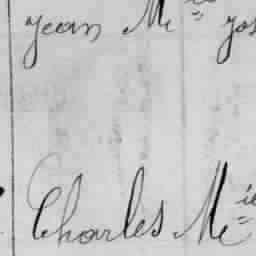 jean M ie jos
Charles M ie